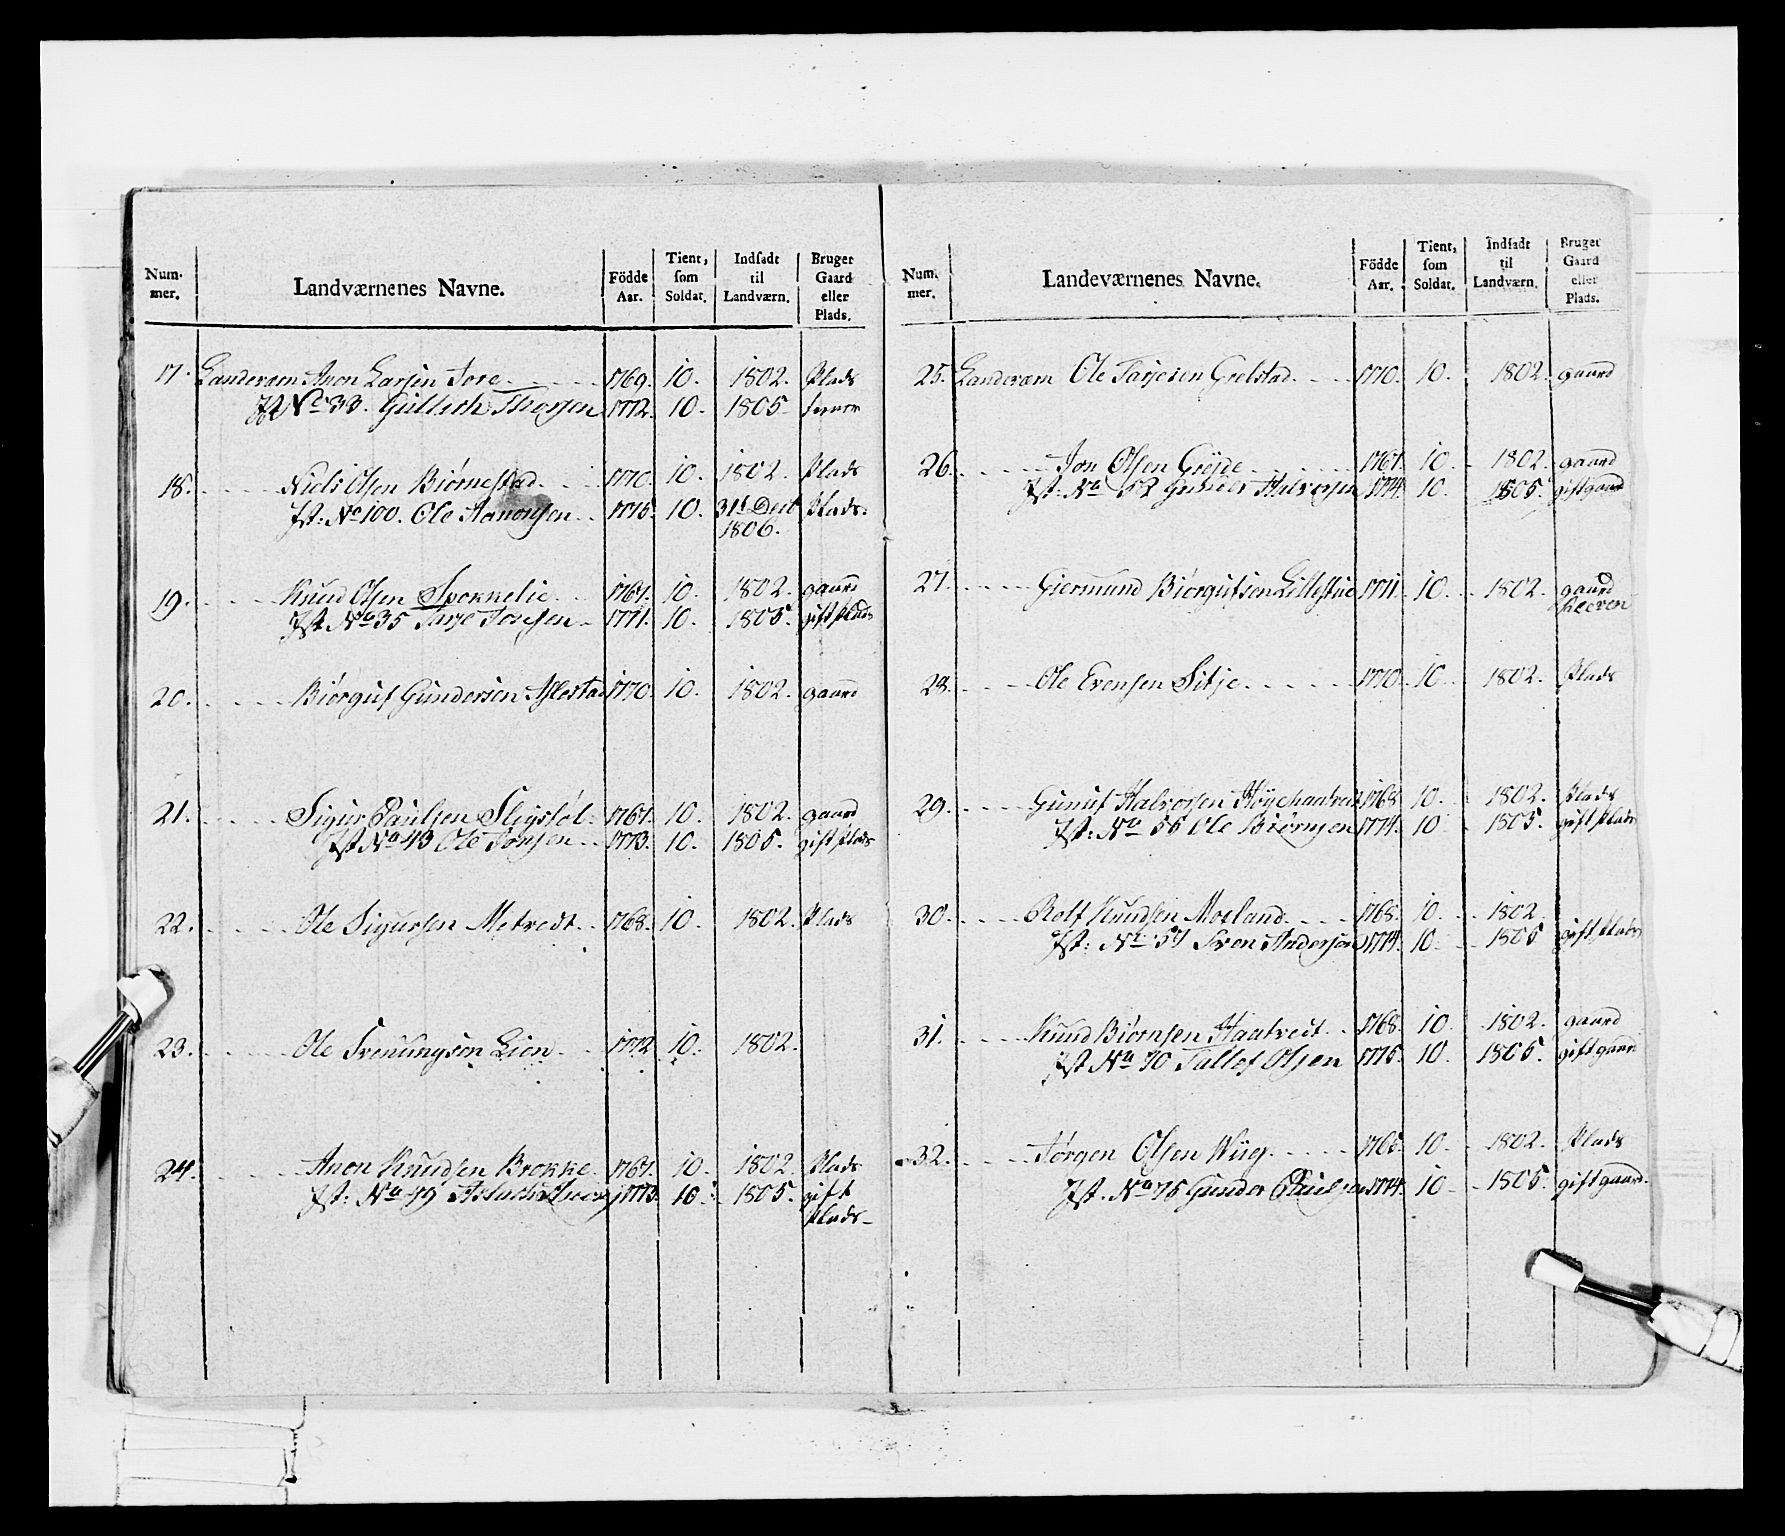 Num-mer. Landværnenes Navne. Födde Aar. Tient, som Soldat. Indsadt til Landværn. Bruger Gaard eller Plads.
17. Landeværn Anon Larsen Tore 1769. 10. 1802. Plads
Ist No 33. Gulleth Thorsen 1772. 10. 1805.
18. Niels Olsen Biørnestad 1770. 10. 1802. Plads
Ist: No 100. Ole Aanonsen 1775. 10. 31t Decb 1806. Plads.
19. Knud Olsen 1767. 10. 1802. gaard
Ist No 35 Tarje Tonsen 1771. 10. 1805. gift Plads
20. Biørguf Gundersen 1770. 10. 1802. gaard
21. Sigur Paulsen 1767. 10. 1802. gaard
Ist No 43 Ole Tonsen 1773. 10. 1805. gift Plads
22. Ole Sigursen Metvedt 1768. 10. 1802. Plads
23. Ole Trenungsen Lien 1772 10. 1802.
24. Anon Knudsen Brokke 1767. 10. 1802. Plads
Ist: No 49 1773. 10. 1805. gift Plads
Num-mer. Landeværnenes Navne. Födde Aar. Tient, som Soldat. Indsadt til Landværn. Bruger Gaard eller Plads.
25. Landeværn Ole Tarjesen Grelstad 1770. 10. 1802. gaard
26. Jon Olsen 1767. 10. 1802. gaard
Ist: No 52 Gunder Halvorsen 1774. 10. 1805. gift gaard
27. Giermund Biørgufsen Lillestue 1771. 10. 1802. gaard
28. Ole Evensen Sitje 1770. 10. 1802. Plads
29. Gunuf Halvorsen 1768 10. 1802. Plads
Ist: No 55 Ole Biørnsen 1774. 10. 1805. gift Plads
30. Rolf Knudsen Moeland 1768. 10. 1802
Ist: No 57 Sven Andersen 1774. 10. 1805 gift Plads
31. Knud Biørnsen Haatvedt 1768. 10. 1802. gaard
Ist No 70 Tallef Olsen 1775. 10. 1805. gift gaard
32. Tørgen Olsen Wiig 1765. 10. 1802. Plads
Ist. No 75 Gunder Paulsen 1774. 10. 1805. gift gaard.